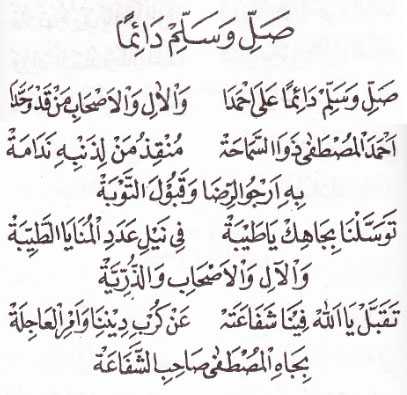 صَلِّ وَسَلِّمْ دَائِمًا
صَلِّ وَسَلِّمْ دَائِمًا عَلَى احْمَدَا وَالْاٰلِ وَالْاَصْحَابِ مَنْ قَدْ وَحَّدَا
اَحْمَدَ الْمُصْطَفٰى ذَوَا السَّمَاحَةْ مُنْقِذُ مَنْ لِذَنْبِهِ نَدَامَةْ
بِهِ اَرْجُو الرِّضَا وَقَبُوْلَ التَّوْبَةْ
تَوَسَّلْنَا بِجَاهِكَ يَا طَيْبَةْ فِى نَيْلِ عَدَدِ الْمُنَايَا الطَّيِّبَةْ
وَالْاٰلِ وَالْاَصْحَابِ وَالذُّرِّيَّةْ
تَقَبَّلْ يَا اَللّٰهُ فِيْنَا شَفَاعَتَهْ عَنْ كُرَبِ دِيْنِنَا وَامْرِ الْعَاجِلَةْ
بِجَاهِ الْمُصْطَفٰى صَاحِبِ الشَّفَاعَةْ